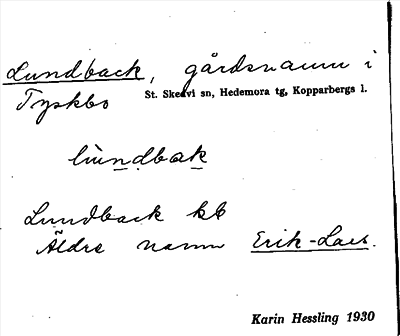 Lundback, gårdsnamn i
Tyskbo St. Skedvi sn, Hedemora tg, Kopparbergs l.
lùndbak
Lundback kb
Äldre namn Erik-Lars.
Karin Hessling 1930